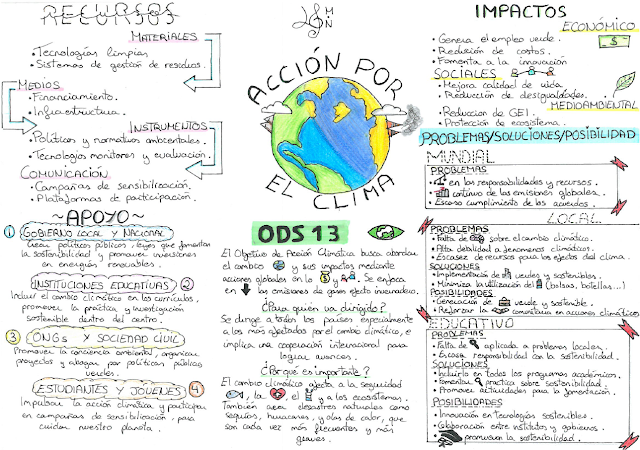 RECURSOS
MATERIALES
• Tecnologías limpias
• Sistemas de gestión de residuos.
MEDIOS
• Financiamiento.
• Infraestructura.
INSTRUMENTOS
• Políticas y normativas ambientales.
• Tecnologías monitoreo y evaluación.
COMUNICACIÓN
• Campañas de sensibilización.
• Plataformas de participación.
~APOYO~
1 GOBIERNO LOCAL Y NACIONAL
Crear políticas públicas, leyes que fomentan
la sostenibilidad y promover inversiones
en energías renovables.
INSTITUCIONES EDUCATIVAS 2
Incluir el cambio climático en los currículos,
promover la práctica y investigación
sostenible dentro del centro.
3 ONGs Y SOCIEDAD CIVIL
Promover la conciencia ambiental, organizar
proyectos y abogar por políticas públicas
verdes.
ESTUDIANTES Y JÓVENES 4
Impulsar la acción climática y participar
en campañas de sensibilización para
cuidar nuestro planeta.
M
N
ACCIÓN POR
EL CLIMA
ODS 13
El Objetivo de Acción Climática busca abordar
el cambio y sus impactos mediante
acciones globales en lo $ y. Se enfoca
en las emisiones de gases efecto invernadero.
¿Para quién va dirigido?
Se dirige a todos los países especialmente
a los más afectados por el cambio climático, e
implica una cooperación internacional para
lograr avances.
¿Por qué es importante?
El cambio climático afecta a la seguridad
, la, el y a los ecosistemas.
También crea desastres naturales como
sequías, huracanes, y olas de calor, que
son cada vez más frecuentes y más
graves.
IMPACTOS
ECONÓMICO
• Genera el empleo verde.
• Reducción de costos.
• Fomenta a la innovación
$
SOCIALES
• Mejora calidad de vida.
• Reducción de desigualdades.
MEDIOAMBIENTAL
• Reducción de GEI.
• Protección de ecosistema.
PROBLEMAS/SOLUCIONES/POSIBILIDAD
MUNDIAL
PROBLEMAS
• en las responsabilidades y recursos.
• continuo de las emisiones globales.
• Escaso cumplimiento de los acuerdos.
LOCAL
PROBLEMAS
• Falta de sobre el cambio climático.
• Alta debilidad a fenómenos climáticos.
• Escasez de recursos para los efectos del clima.
SOLUCIONES
• Implementación de verdes y sostenibles.
• Minimiza la utilización del (bolsas, botellas...)
POSIBILIDADES
• Generación de verde y sostenible.
• Reforzar la comunitaria en acciones climáticas
EDUCATIVO
PROBLEMAS
• Falta de aplicada a problemas locales.
• Escasa responsabilidad con la sostenibilidad.
SOLUCIONES
• Incluirlo en todos los programas académicos.
• Fomentar práctica sobre sostenibilidad.
• Promover actividades para la fomentación.
POSIBILIDADES
• Innovación en tecnologías sostenibles.
• Colaboración entre institutos y gobiernos.
• promueven la sostenibilidad.